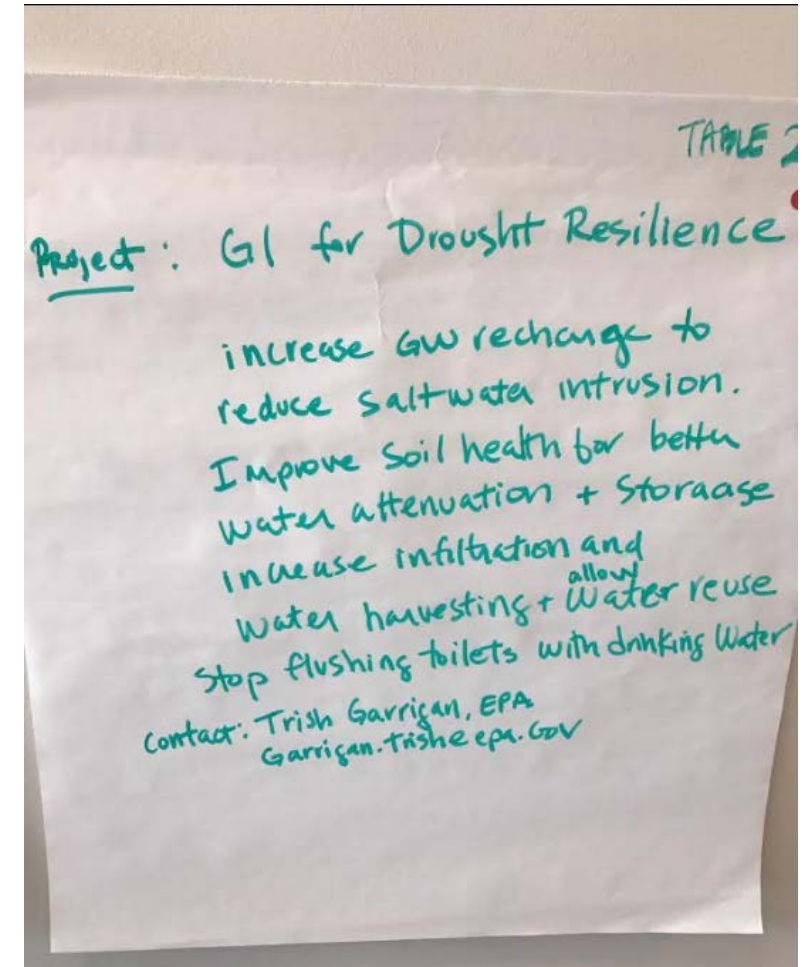 TABLE 2
Project: GI for Drousht Resilience
increase GW recharge to
reduce saltwater intrusion.
Improve soil health for better
water attenuation + Storaase
increase infiltration and
allow
water harvesting + water reuse
Stop flushing toilets with drinking Water
Contact: Trish Garrigan, EPA
Garrigan.trish@epa.GOV